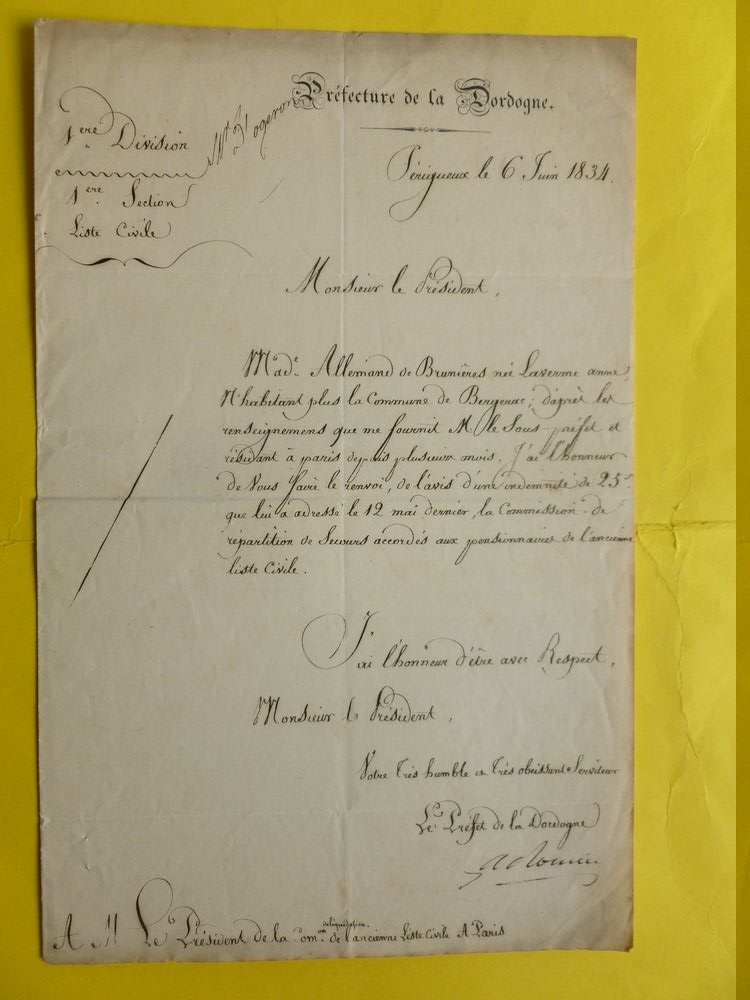 Préfecture de la Dordogne.
1ère Division
1ère Section
Liste Civile
Périgueux le 6 Juin 1834.
Monsieur le Président,
Made. Allemand de Brunières née Laverme anne,
N'habitant plus la Commune de Bergerac, d'après les
renseignemens que me fournit M. le Sous préfet et
résidant à paris depuis plusieurs mois, J'ai l'honneur
de Vous faire le renvoi, de l'avis d'une indemnité de 25f.
que lui a adressé le 12 mai dernier, la Commission de
répartition de Secours accordés aux pensionnaires de l'ancienne
liste Civile.
J'ai l'honneur d'être avec Respect,
Monsieur le Président,
Votre très humble et très obéissant Serviteur
Le Préfet de la Dordogne
A M Le Président de la Comon. de liquidation de l'ancienne Liste Civile A Paris